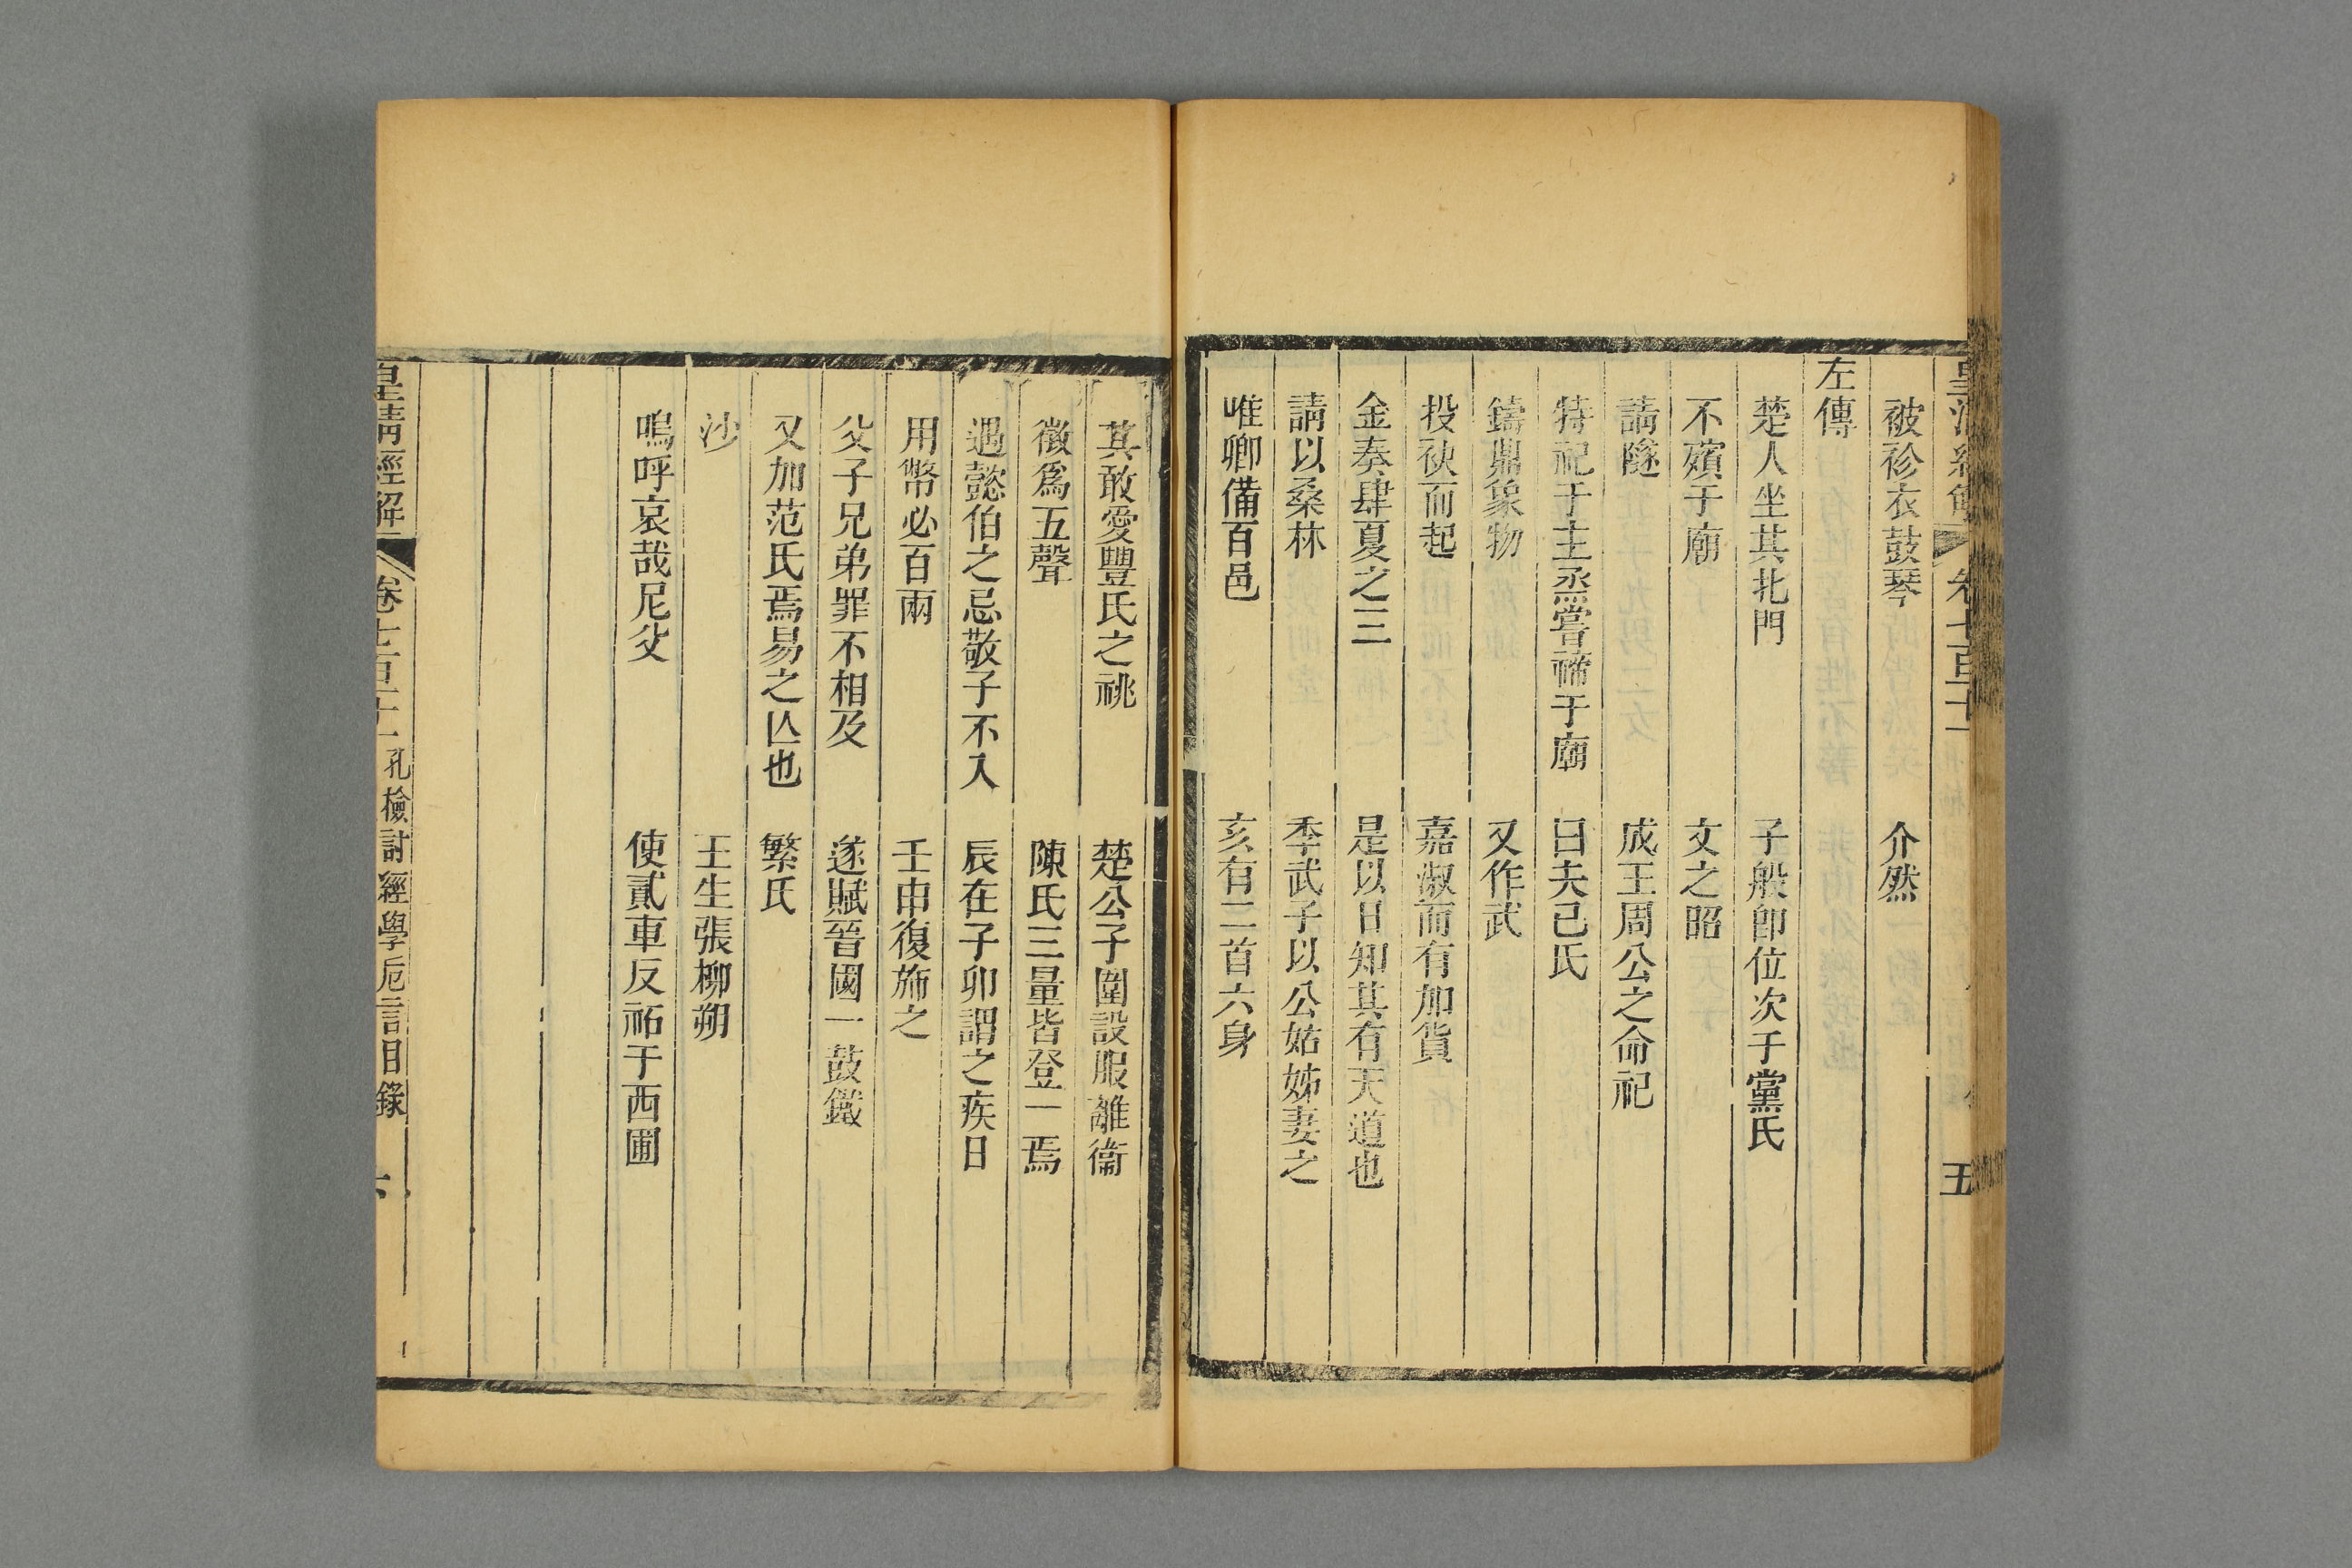 皇清經解 卷七百十一 五
被袗衣鼓琴 介然
左傳
楚人坐其北門 子般卽位次于黨氏
不殯于廟 文之昭
請隧 成王周公之命祀
特祀于主烝嘗禘于廟 曰夫己氏
鑄鼎象物 又作武
投袂而起 嘉淑而有加貨
金奏肆夏之三 是以日知其有天道也
請以桑林 季武子以公姑姊妻之
唯卿備百邑 亥有二首六身
其敢愛豐氏之祧 楚公子圍設服離衞
徵爲五聲 陳氏三量皆登一焉
遇懿伯之忌敬子不入 辰在子卯謂之疾日
用幣必百兩 壬申復旆之
父子兄弟罪不相及 遂賦晉國一鼓鐵
又加范氏焉易之亾也 繁氏
沙 王生張柳朔
嗚呼哀哉尼父 使貳車反祏于西圃
皇淸經解 卷七百十一 孔檢討經學卮言目錄